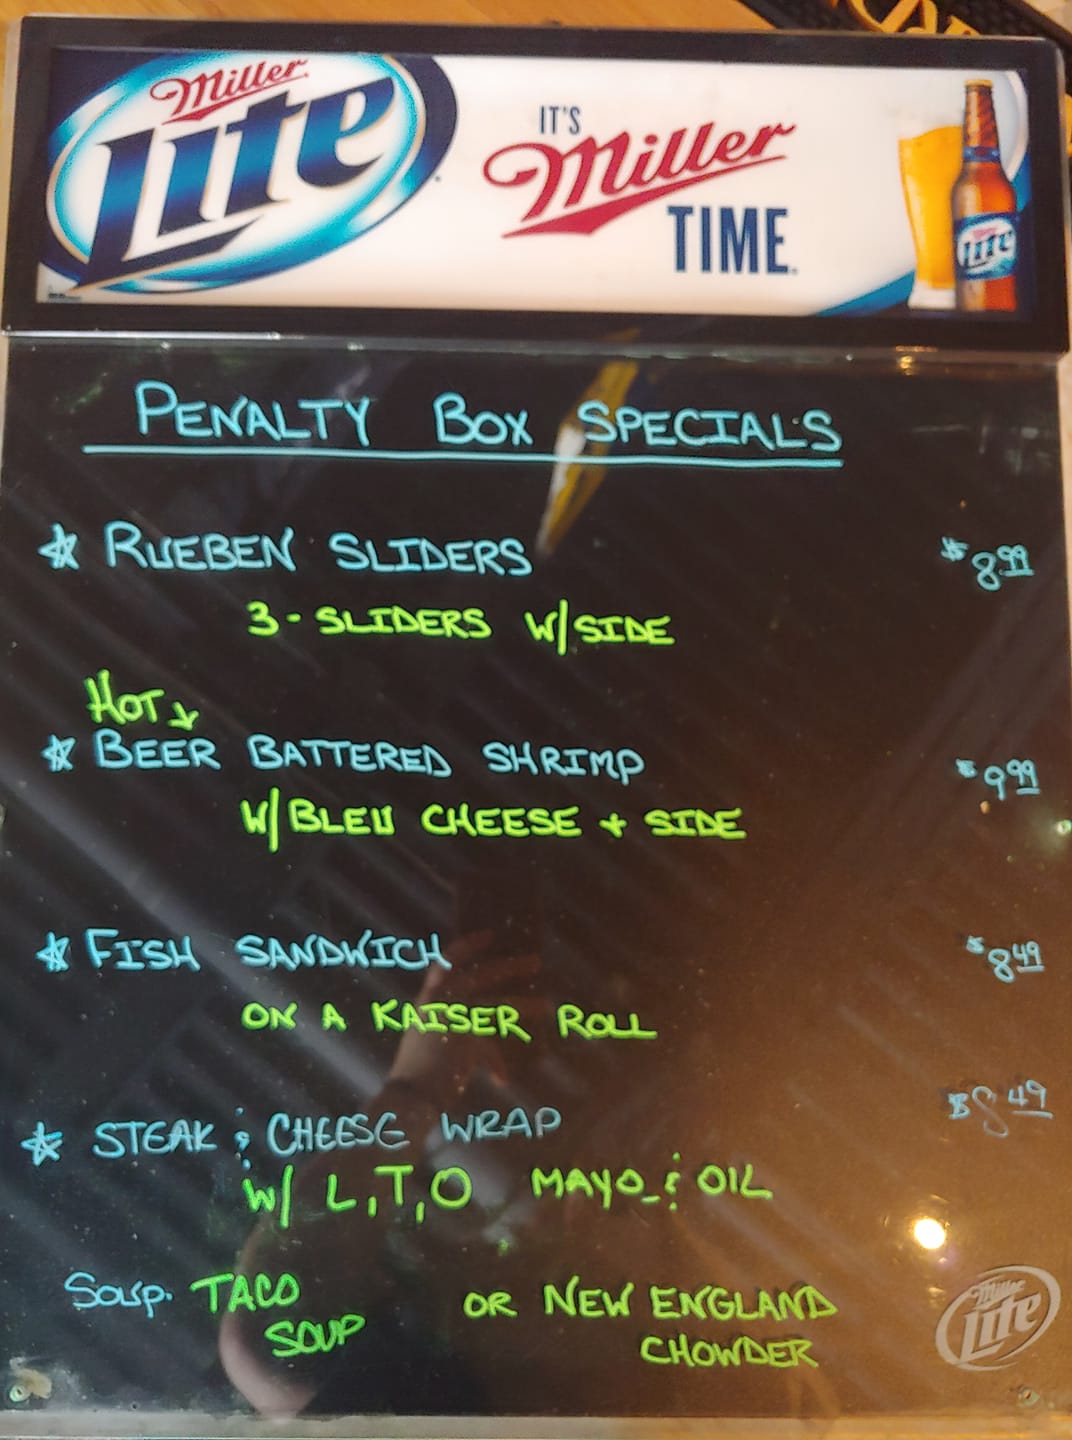 Miller
Lite
IT'S
Miller
TIME.
Lite
PENALTY BOX SPECIALS
RUEBEN SLIDERS $8.99
3-SLIDERS W/SIDE
HOT
BEER BATTERED SHRIMP $9.99
W/BLEU CHEESE + SIDE
FISH SANDWICH $8.49
ON A KAISER ROLL
STEAK & CHEESE WRAP $8.49
W/ L,T,O MAYO & OIL
SOUP. TACO OR NEW ENGLAND
SOUP CHOWDER
Miller
Lite